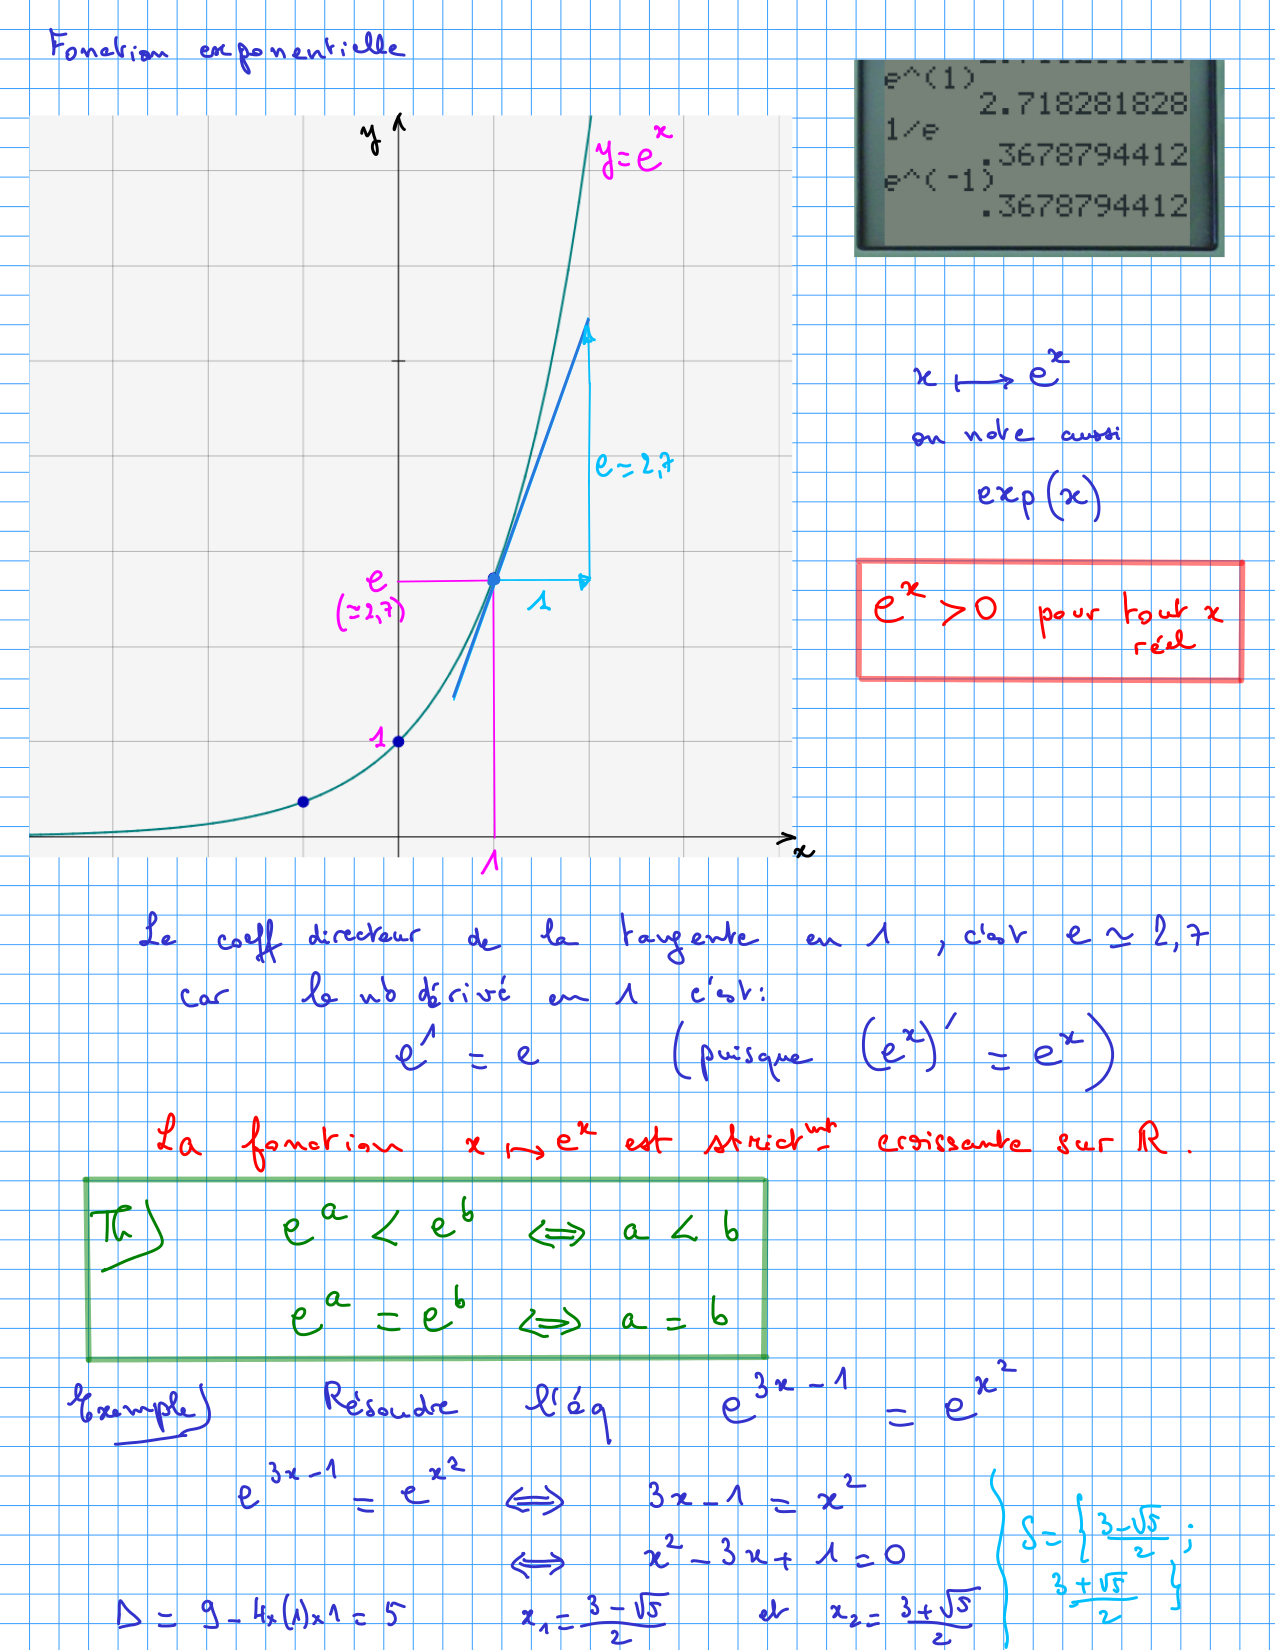 Fonction exponentielle
e^(1)
2.718281828
1/e
.3678794412
e^(-1)
.3678794412
y
y = e^x
x ⟼ e^x
on note aussi
exp(x)
e ≃ 2,7
e
(≃2,7)
1
e^x > 0 pour tout x
réel
1
x
1
Le coeff directeur de la tangente en 1, c'est e ≃ 2,7
car le nb dérivé en 1 c'est :
e^1 = e (puisque (e^x)' = e^x)
La fonction x ⟼ e^x est strict^mt croissante sur ℝ.
Th) e^a < e^b ⟺ a < b
e^a = e^b ⟺ a = b
Exemple) Résoudre l'éq e^(3x-1) = e^(x²)
e^(3x-1) = e^(x²) ⟺ 3x-1 = x²
⟺ x² - 3x + 1 = 0
Δ = 9 - 4×(1)×1 = 5 x₁ = (3-√5)/2 et x₂ = (3+√5)/2
S = { (3-√5)/2 ;
(3+√5)/2 }